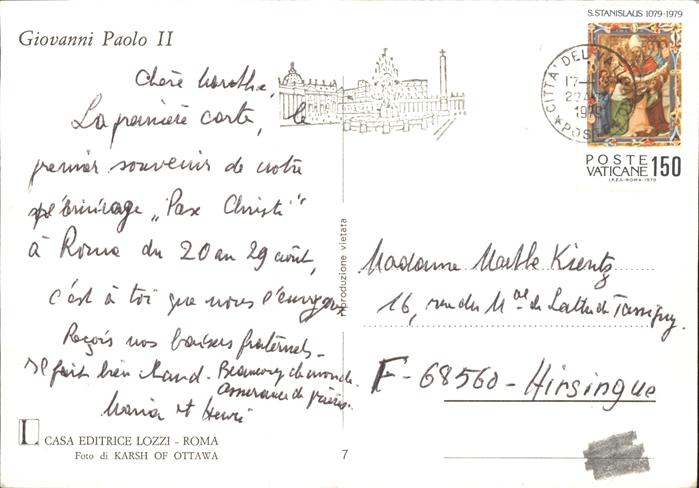 Giovanni Paolo II
S. STANISLAUS 1079-1979
CITTÀ DEL VATICANO
POSTE
1979
POSTE
VATICANE 150
I.P.Z.S.-ROMA-1979
Chère Marthe,
La première carte, le
premier souvenir de notre
pélérinage "Pax Christi"
à Rome du 20 au 29 août,
c'est à toi que nous l'envoyons
Reçois nos baisers fraternels -
Il fait bien chaud. Beaucoup de monde.
Assurance de prières.
Maria et Henri
riproduzione vietata
Madame Marthe Kientz
16, rue du Mal de Lattre de Tassigny.
F-68560-Hirsingue
L CASA EDITRICE LOZZI - ROMA
Foto di KARSH OF OTTAWA
7